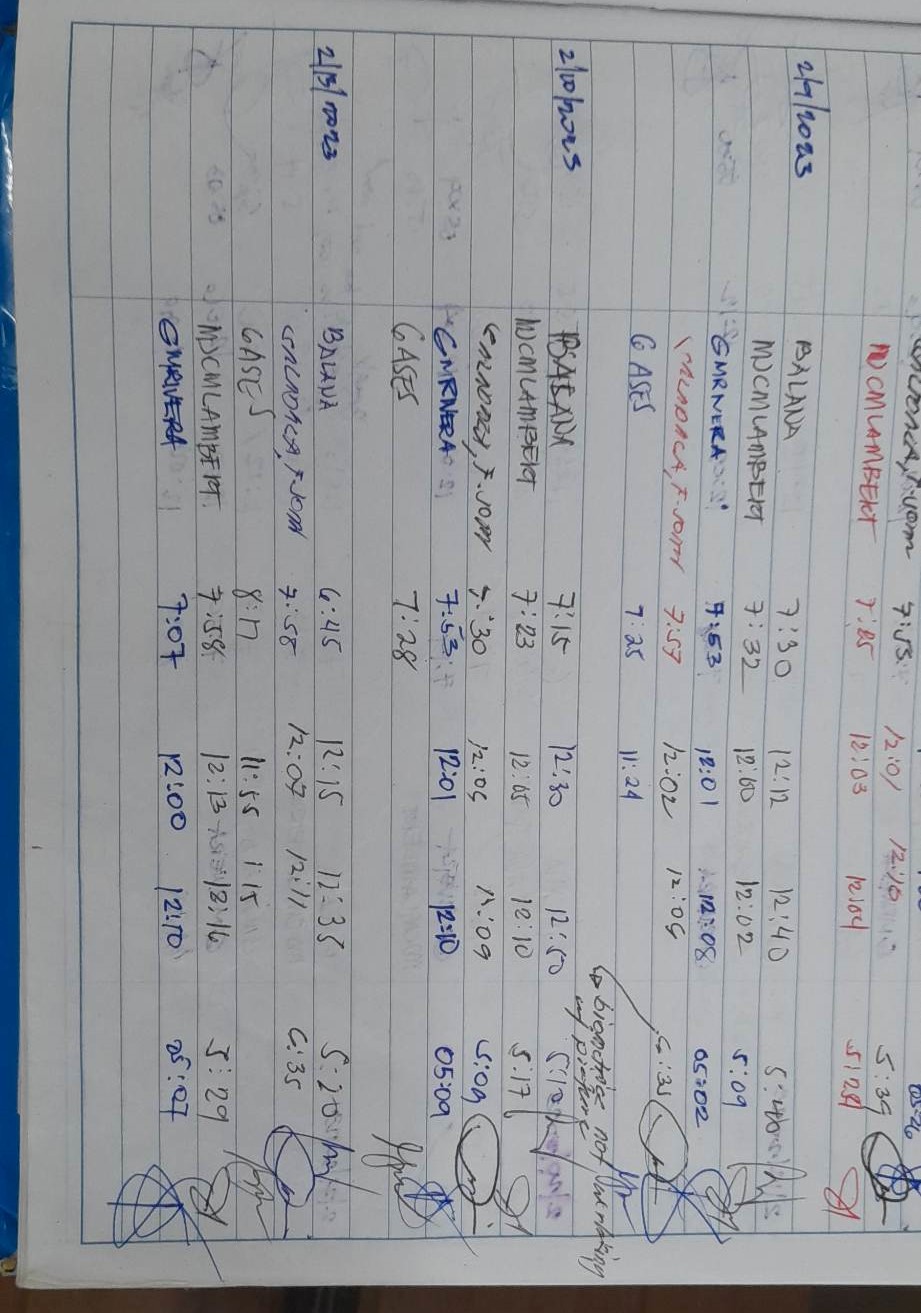 7:53 12:01 12:10 5:39
MDCMLAMBERT 7:25 12:03 12:04 5:28
2/9/2023 BALANA 7:30 12:12 12:40 5:40
MDCMLAMBERT 7:32 12:00 12:02 5:09
GMRNERA 7:53 12:01 12:08 05:02
7:57 12:02 12:09 6:35
GASES 7:25 11:24
↳ biometrics not functioning w/ picture
2/10/2023 BALANA 7:15 12:30 12:50 5:10
MDCMLAMBERT 7:23 12:05 12:10 5:17
7:30 12:05 12:09 5:09
GMRNERA 7:53 12:01 12:10 05:09
GASES 7:28
2/13/2023 BALANA 6:45 12:15 12:35 5:20
7:58 12:09 12:11 6:35
GASES 8:17 11:55 1:15
MDCMLAMBERT 7:58 12:13 12:16 5:29
GMRNERA 7:07 12:00 12:10 05:07